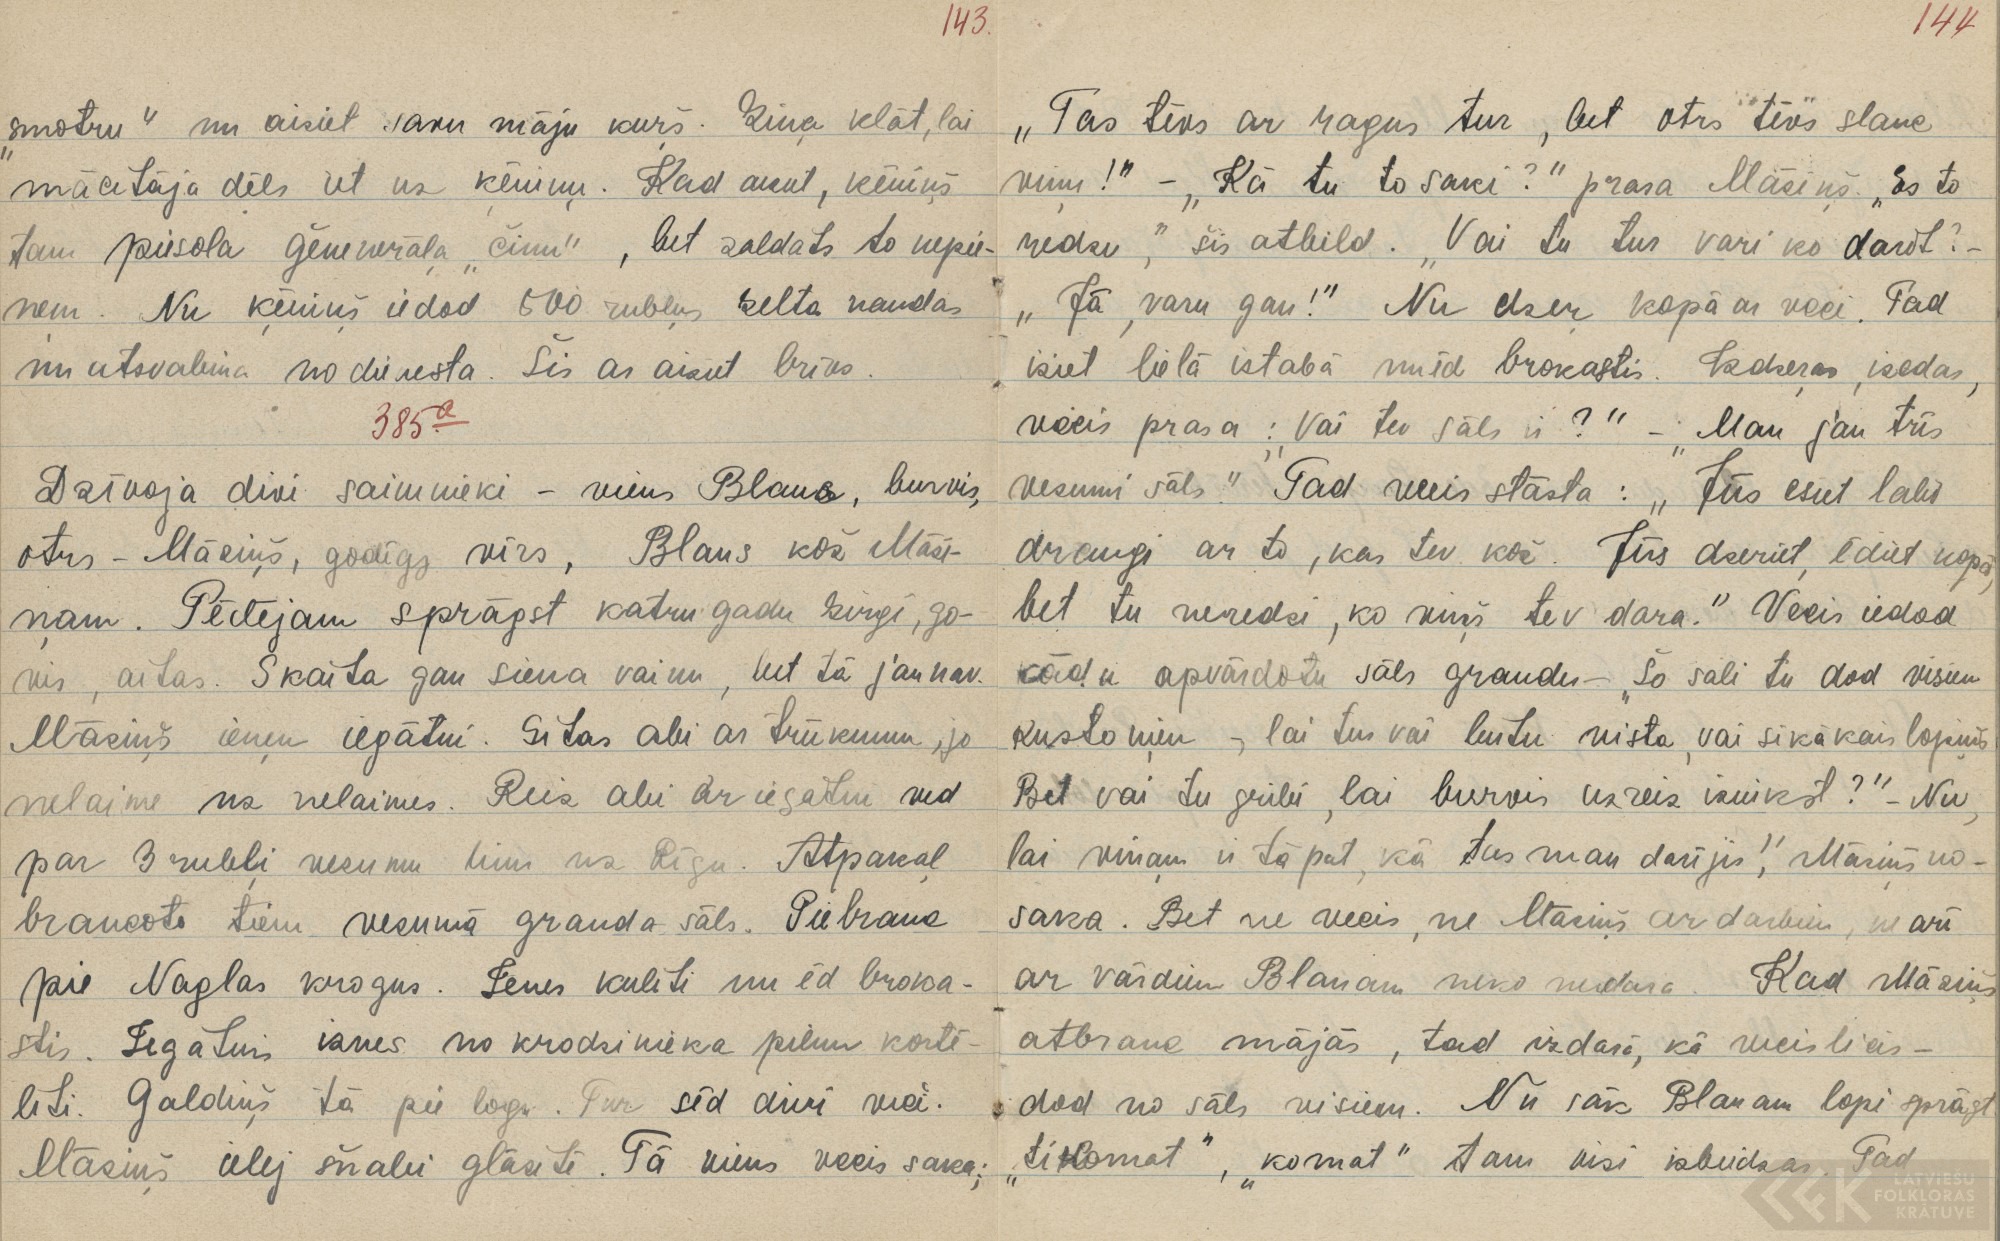 143.
„smotru" nu aiziet savu māju kurš. Ziņa klāt, lai
mācitāja dēls iet uz ķēniņu. Kad aiziet, ķēniņš
tam piesola ģenerāļa „činu", bet zaldats to nepie-
ņem. Nu ķēniņš iedod 500 rubļus zelta naudas
un atsvabina no dienesta. Šis ar aiziet brīvs.
385.a
Dzīvoja divi saimnieki – viens Blaus, burvis,
otrs – Māziņš, godīgs vīrs, Blaus kož Māzi-
ņam. Pēdējam sprāgst katru gadu zirgi, go-
vis, aitas. Skaita gan siena vainu, bet tā jau nav.
Māziņš ieņem iegātni. Sitas abi ar trūkumu, jo
nelaime uz nelaimes. Reiz abi ar iegātni ved
par 3 rubļi vezumu linu uz Rīgu. Atpakaļ
braucot tiem vezumā grauda sāls. Piebrauc
pie Naglas krogus. Ienes kulīti un ēd broka-
stis. Iegātnis iznes no krodzinieka pilnu kortē-
līti. Galdiņš tā pie loga. Tur sēd divi veči.
Māziņš ielej šņabi glāzītē. Tā viens vecis saka:
144
„Tas tēvs ar ragus tur, bet otrs "tēvs" slauc
viņu!" – „Kā tu to saki?" prasa Māziņš. „Es to
redzu," šis atbild. „Vai tu tur vari ko darīt? –
„Jā, varu gan!" Nu dzeŗ kopā ar veci. Tad
iziet lielā istabā un ēd brokastis. Izdzeŗas, izēdas,
vecis prasa: „Vai tev sāls ir?" – „Man jau trīs
vezumi sāls." Tad vecis stāsta: „Jūs esiet labi
draugi ar to, kas tev kož. Jūs dzeriet, ēdiet kopā,
bet tu neredzi, ko viņš tev dara." Vecis iedod
kādu apvārdotu sāls graudu – „Šo sāli tu dod visiem
kustoņiem –, lai tur vai būtu vista, vai sīkākais lopiņš
Bet vai tu gribi, lai burvis uzreiz iznīkst?" – Nu,
lai viņam ir tāpat, kā tas man darījis!," Māziņš no-
saka. Bet ne vecis, ne Māziņš ar darbiem, ne arī
ar vārdiem Blauam neko nedara. Kad Māziņš
atbrauc mājās, tad izdara, kā vecis licis –
dod no sāls visiem. Nu sāk Blauam lopi sprāgt
„komat", „komat" tam visi izbeidzas. Tad
LATVIEŠU
FOLKLORAS
KRĀTUVE